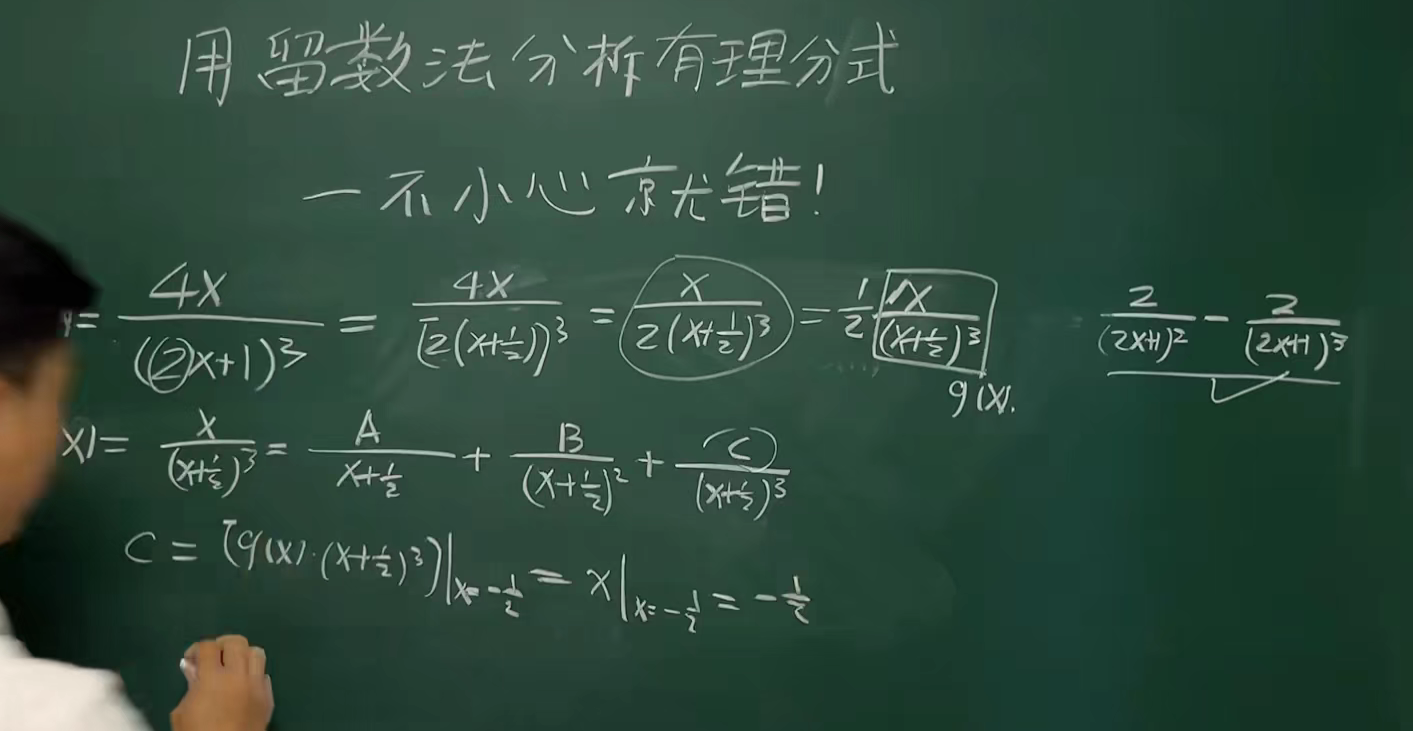 用留数法分析有理分式
一不小心就错!
y = 4x/((2)x+1)³ = 4x/[2(x+1/2)]³ = x/2(x+1/2)³ = 1/2 x/(x+1/2)³ = 2/(2x+1)² - 2/(2x+1)³ ✓
g(x).
x) = x/(x+1/2)³ = A/(x+1/2) + B/(x+1/2)² + C/(x+1/2)³
C = [g(x)·(x+1/2)³]|x=-1/2 = x|x=-1/2 = -1/2